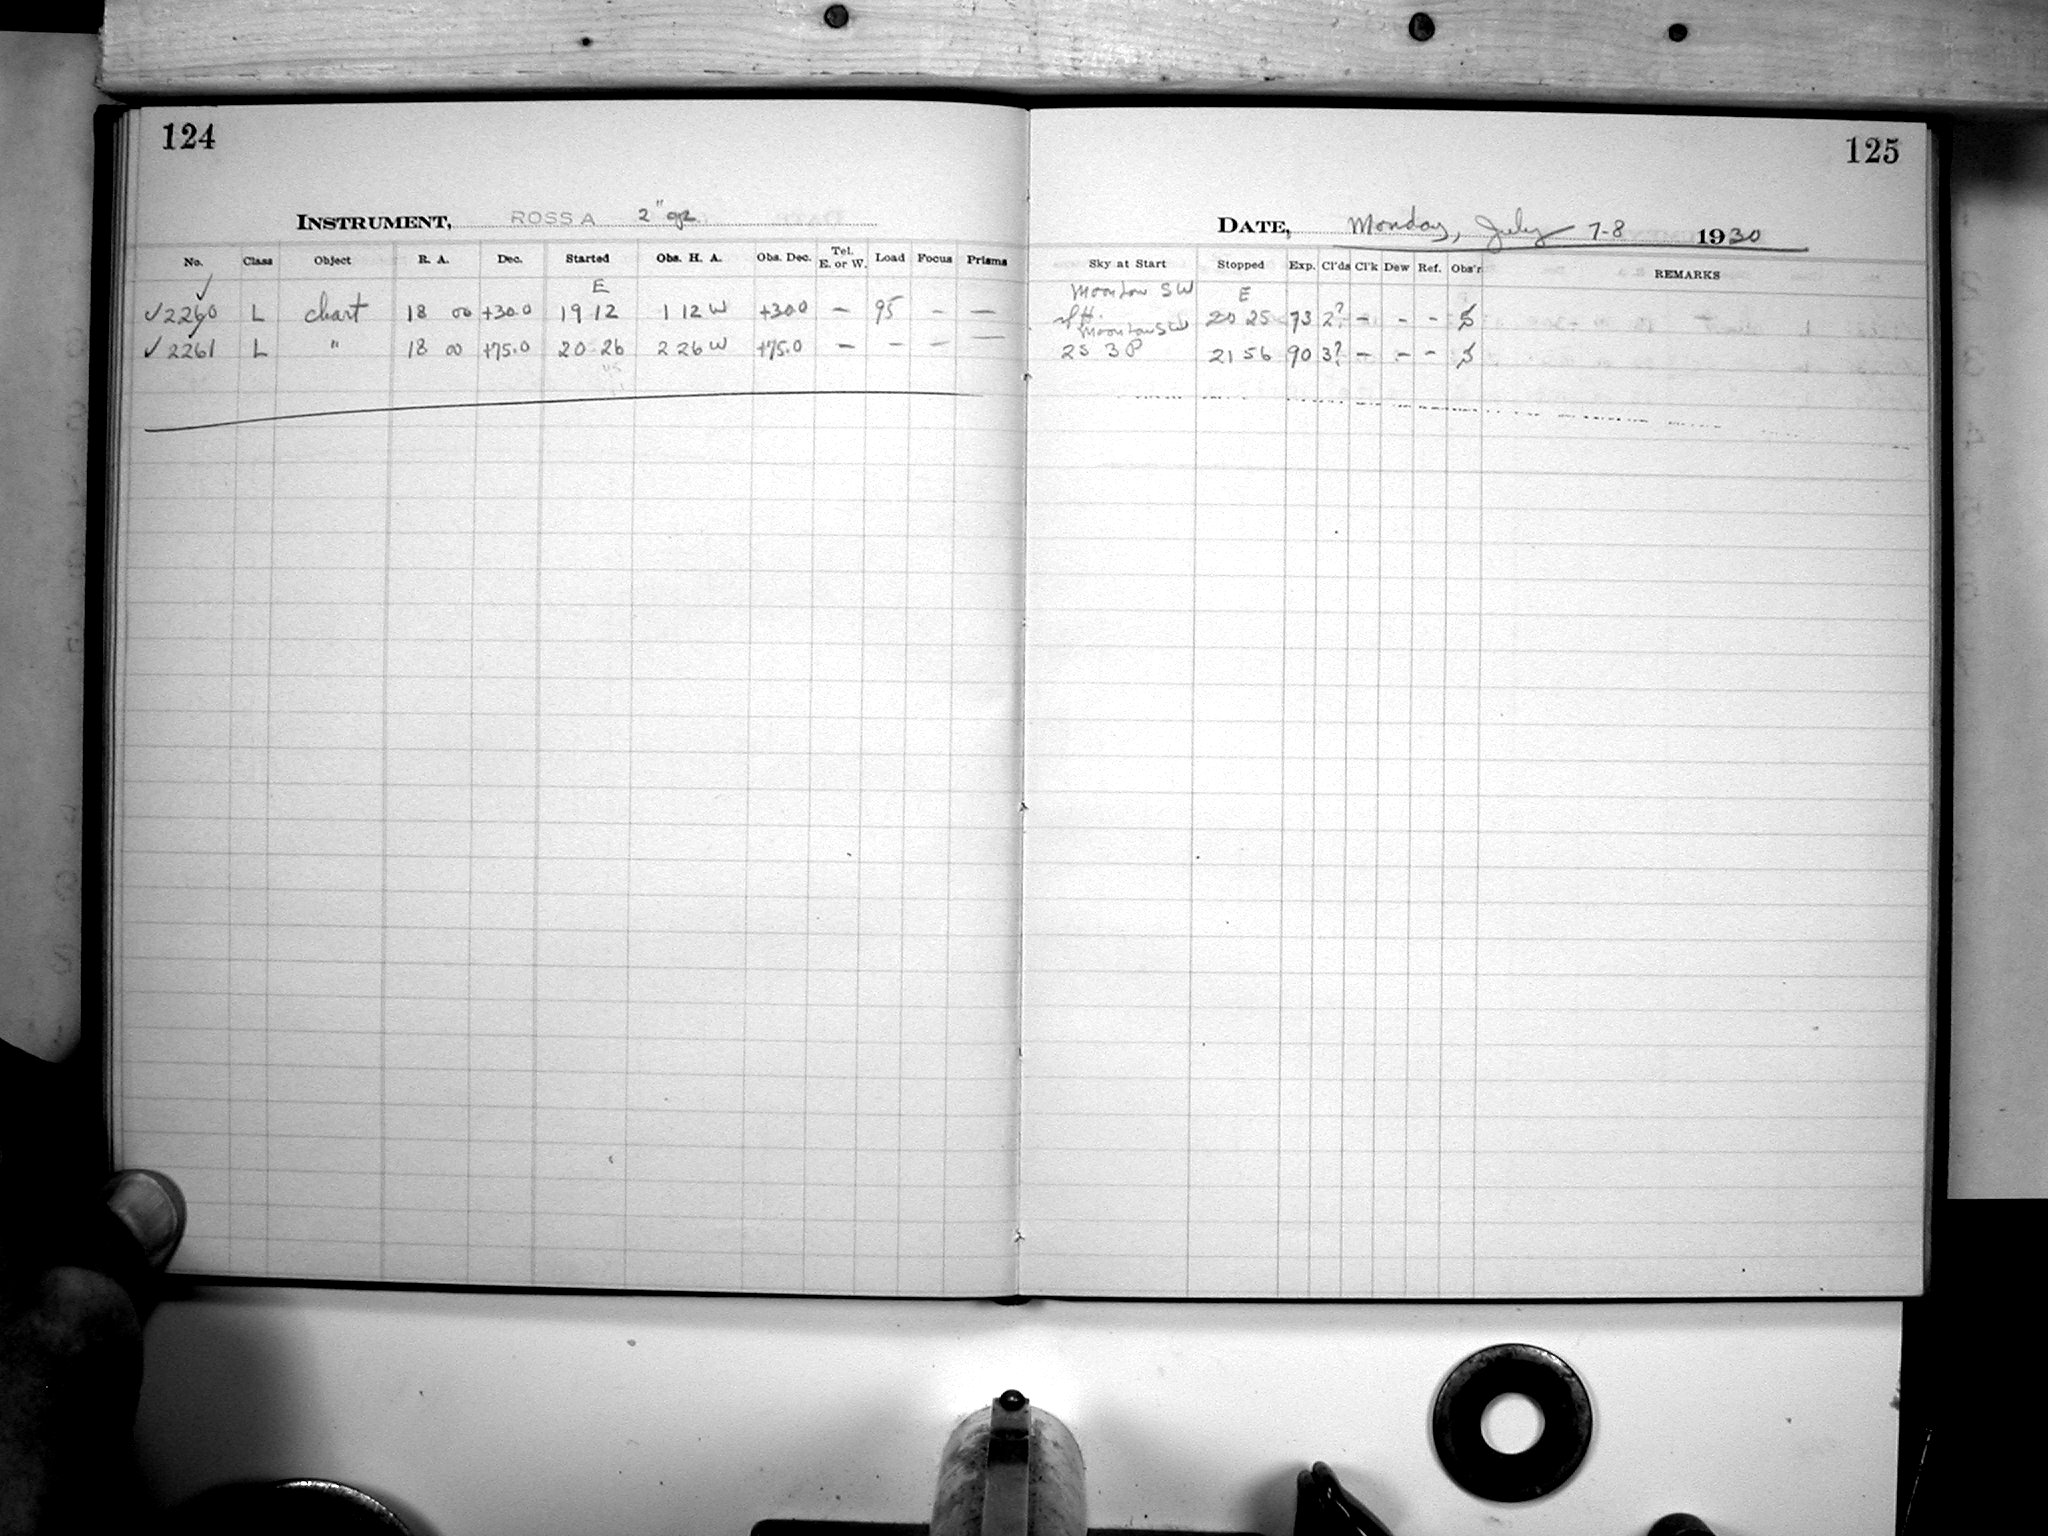 124
INSTRUMENT, ROSS A 2"
No. Class Object R. A. Dec. Started Obs. H. A. Obs. Dec. Tel. E. or W. Load Focus Prisms
E
✓2260 L chart 18 00 +30.0 19 12 1 12 W +30.0 – 95 – –
✓2261 L " 18 00 +75.0 20 26 2 26 W +75.0 – – – –
125
DATE, Monday, July 7-8 1930
Sky at Start Stopped Exp. Cl'ds Cl'k Dew Ref. Obs'r REMARKS
Moon Low SW E
20 25 73 2? – – –
Moon Low SW
2S 3P 21 56 90 3? – – –